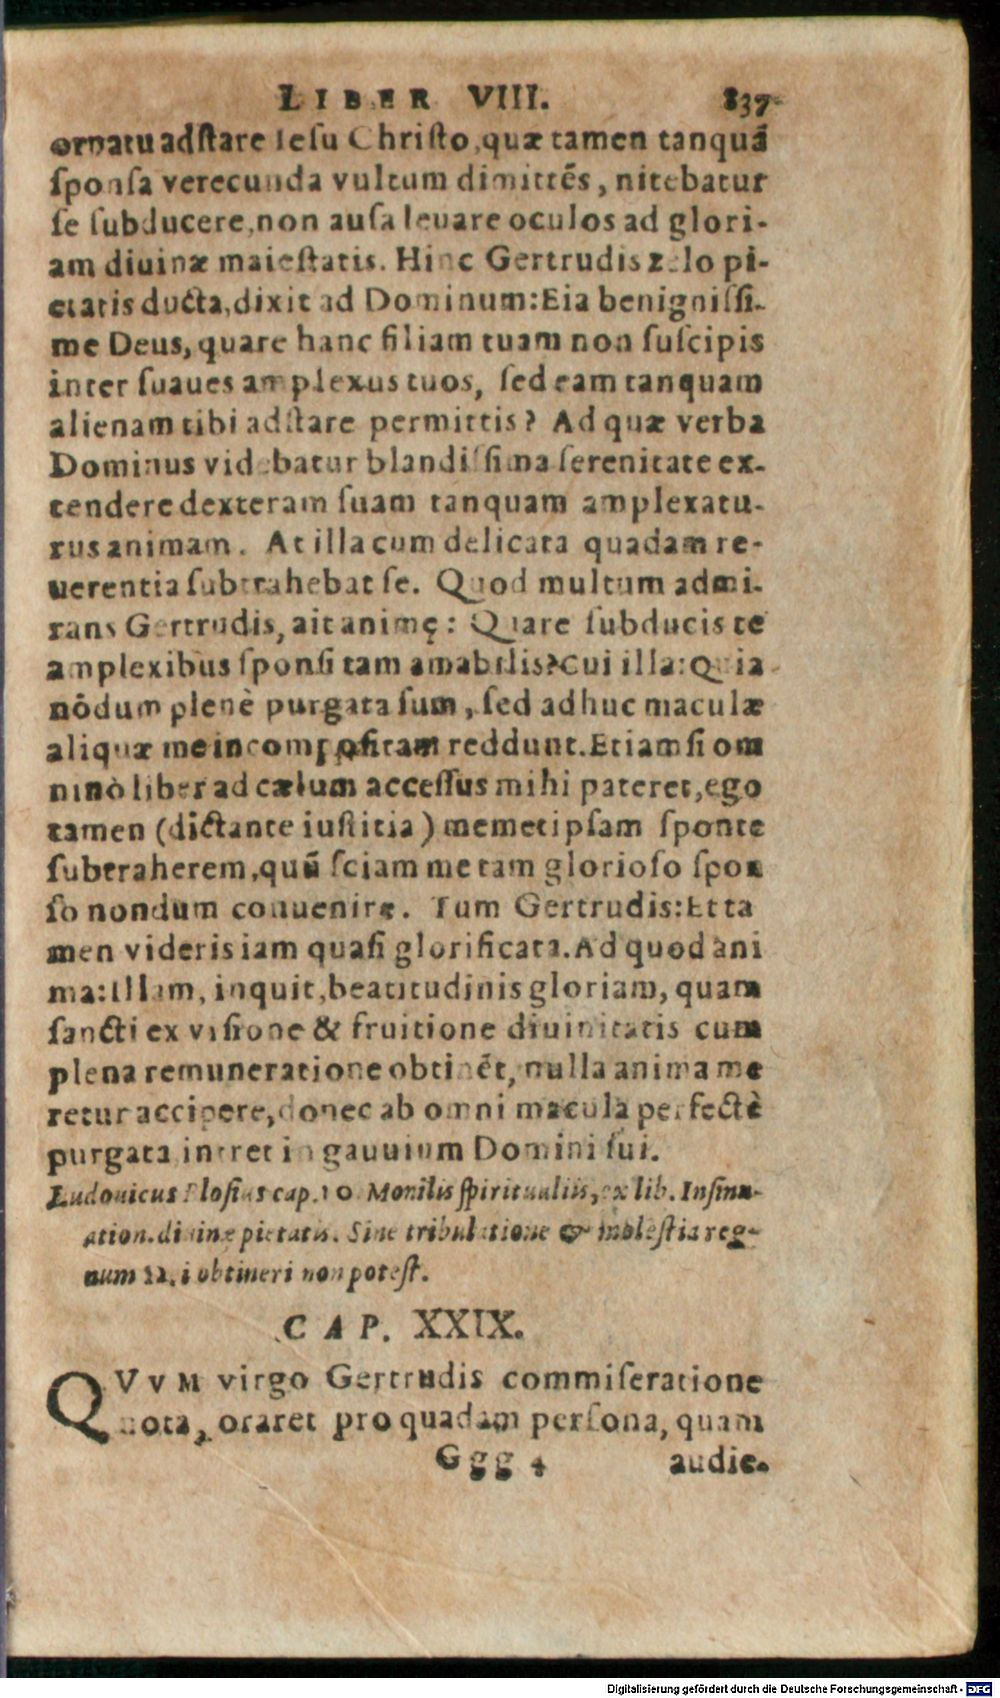 LIBER VIII. 837
ornatu adſtare Ieſu Chriſto, quæ tamen tanquã
ſponſa verecunda vultum dimittẽs, nitebatur
ſe ſubducere, non auſa leuare oculos ad glori-
am diuinæ maieſtatis. Hinc Gertrudis zelo pi-
etatis ducta, dixit ad Dominum: Eia benigniſſi-
me Deus, quare hanc filiam tuam non ſuſcipis
inter ſuaues amplexus tuos, ſed eam tanquam
alienam tibi adſtare permittis? Ad quæ verba
Dominus videbatur blandiſſima ſerenitate ex-
tendere dexteram ſuam tanquam amplexatu-
rus animam. At illa cum delicata quadam re-
uerentia ſubtrahebat ſe. Quod multum admi-
rans Gertrudis, ait animę: Quare ſubducis te
amplexibus ſponſi tam amabilis? Cui illa: Quia
nõdum plenè purgata ſum, ſed adhuc maculæ
aliquæ me incompoſitam reddunt. Etiamſi om
ninò liber ad cælum acceſſus mihi pateret, ego
tamen (dictante iuſtitia) memetipſam ſponte
ſubtraherem, quũ ſciam me tam glorioſo ſpon
ſo nondum conuenire. Tum Gertrudis: Et ta
men videris iam quaſi glorificata. Ad quod ani
ma: Illam, inquit, beatitudinis gloriam, quam
ſancti ex viſione & fruitione diuinitatis cum
plena remuneratione obtinẽt, nulla anima me
retur accipere, donec ab omni macula perfectè
purgata intret in gauuium Domini ſui.
Ludouicus Bloſius cap. 10. Monilis ſpiritualis, ex lib. Inſinu-
ation. diuinæ pietatis. Sine tribulatione & moleſtia reg-
num Dei obtineri non poteſt.
CAP. XXIX.
QVVM virgo Gertrudis commiſeratione
mota, oraret pro quadam perſona, quam
Ggg 4 audie-
Digitalisierung gefördert durch die Deutsche Forschungsgemeinschaft - DFG